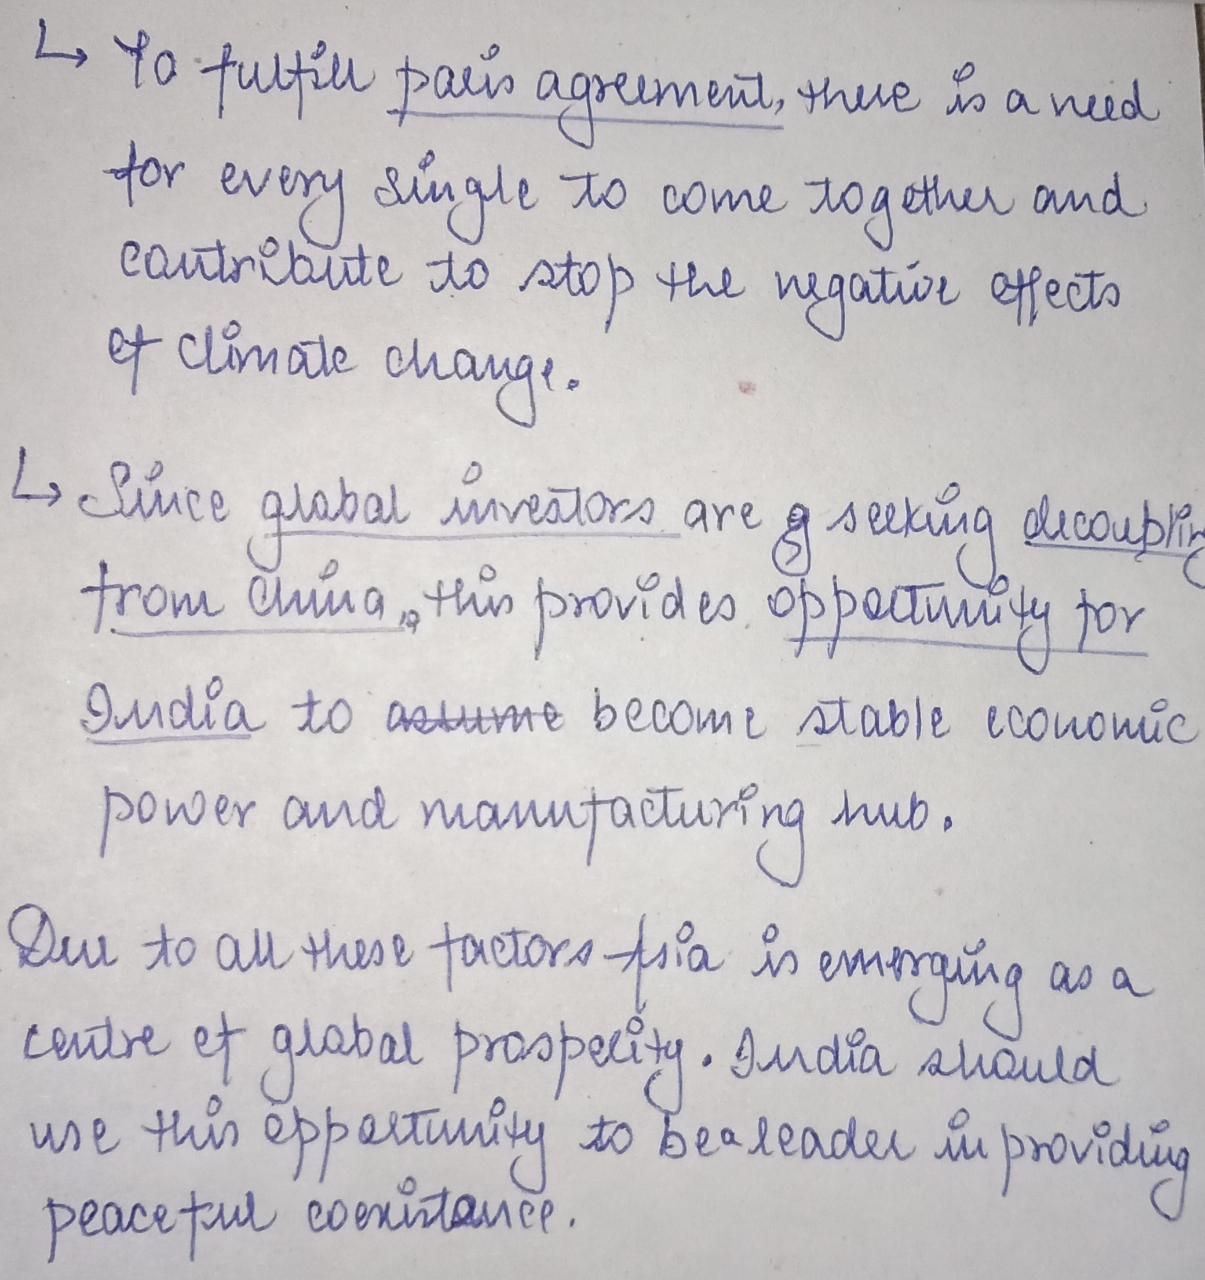 ↳ To fulfill paris agreement, there is a need
for every single to come together and
contribute to stop the negative effects
of climate change.
↳ Since global investors are seeking decoupling
from China, this provides opportunity for
India to assume become stable economic
power and manufacturing hub.
Due to all these factors Asia is emerging as a
centre of global prosperity. India should
use this opportunity to be a leader in providing
peaceful coexistance.